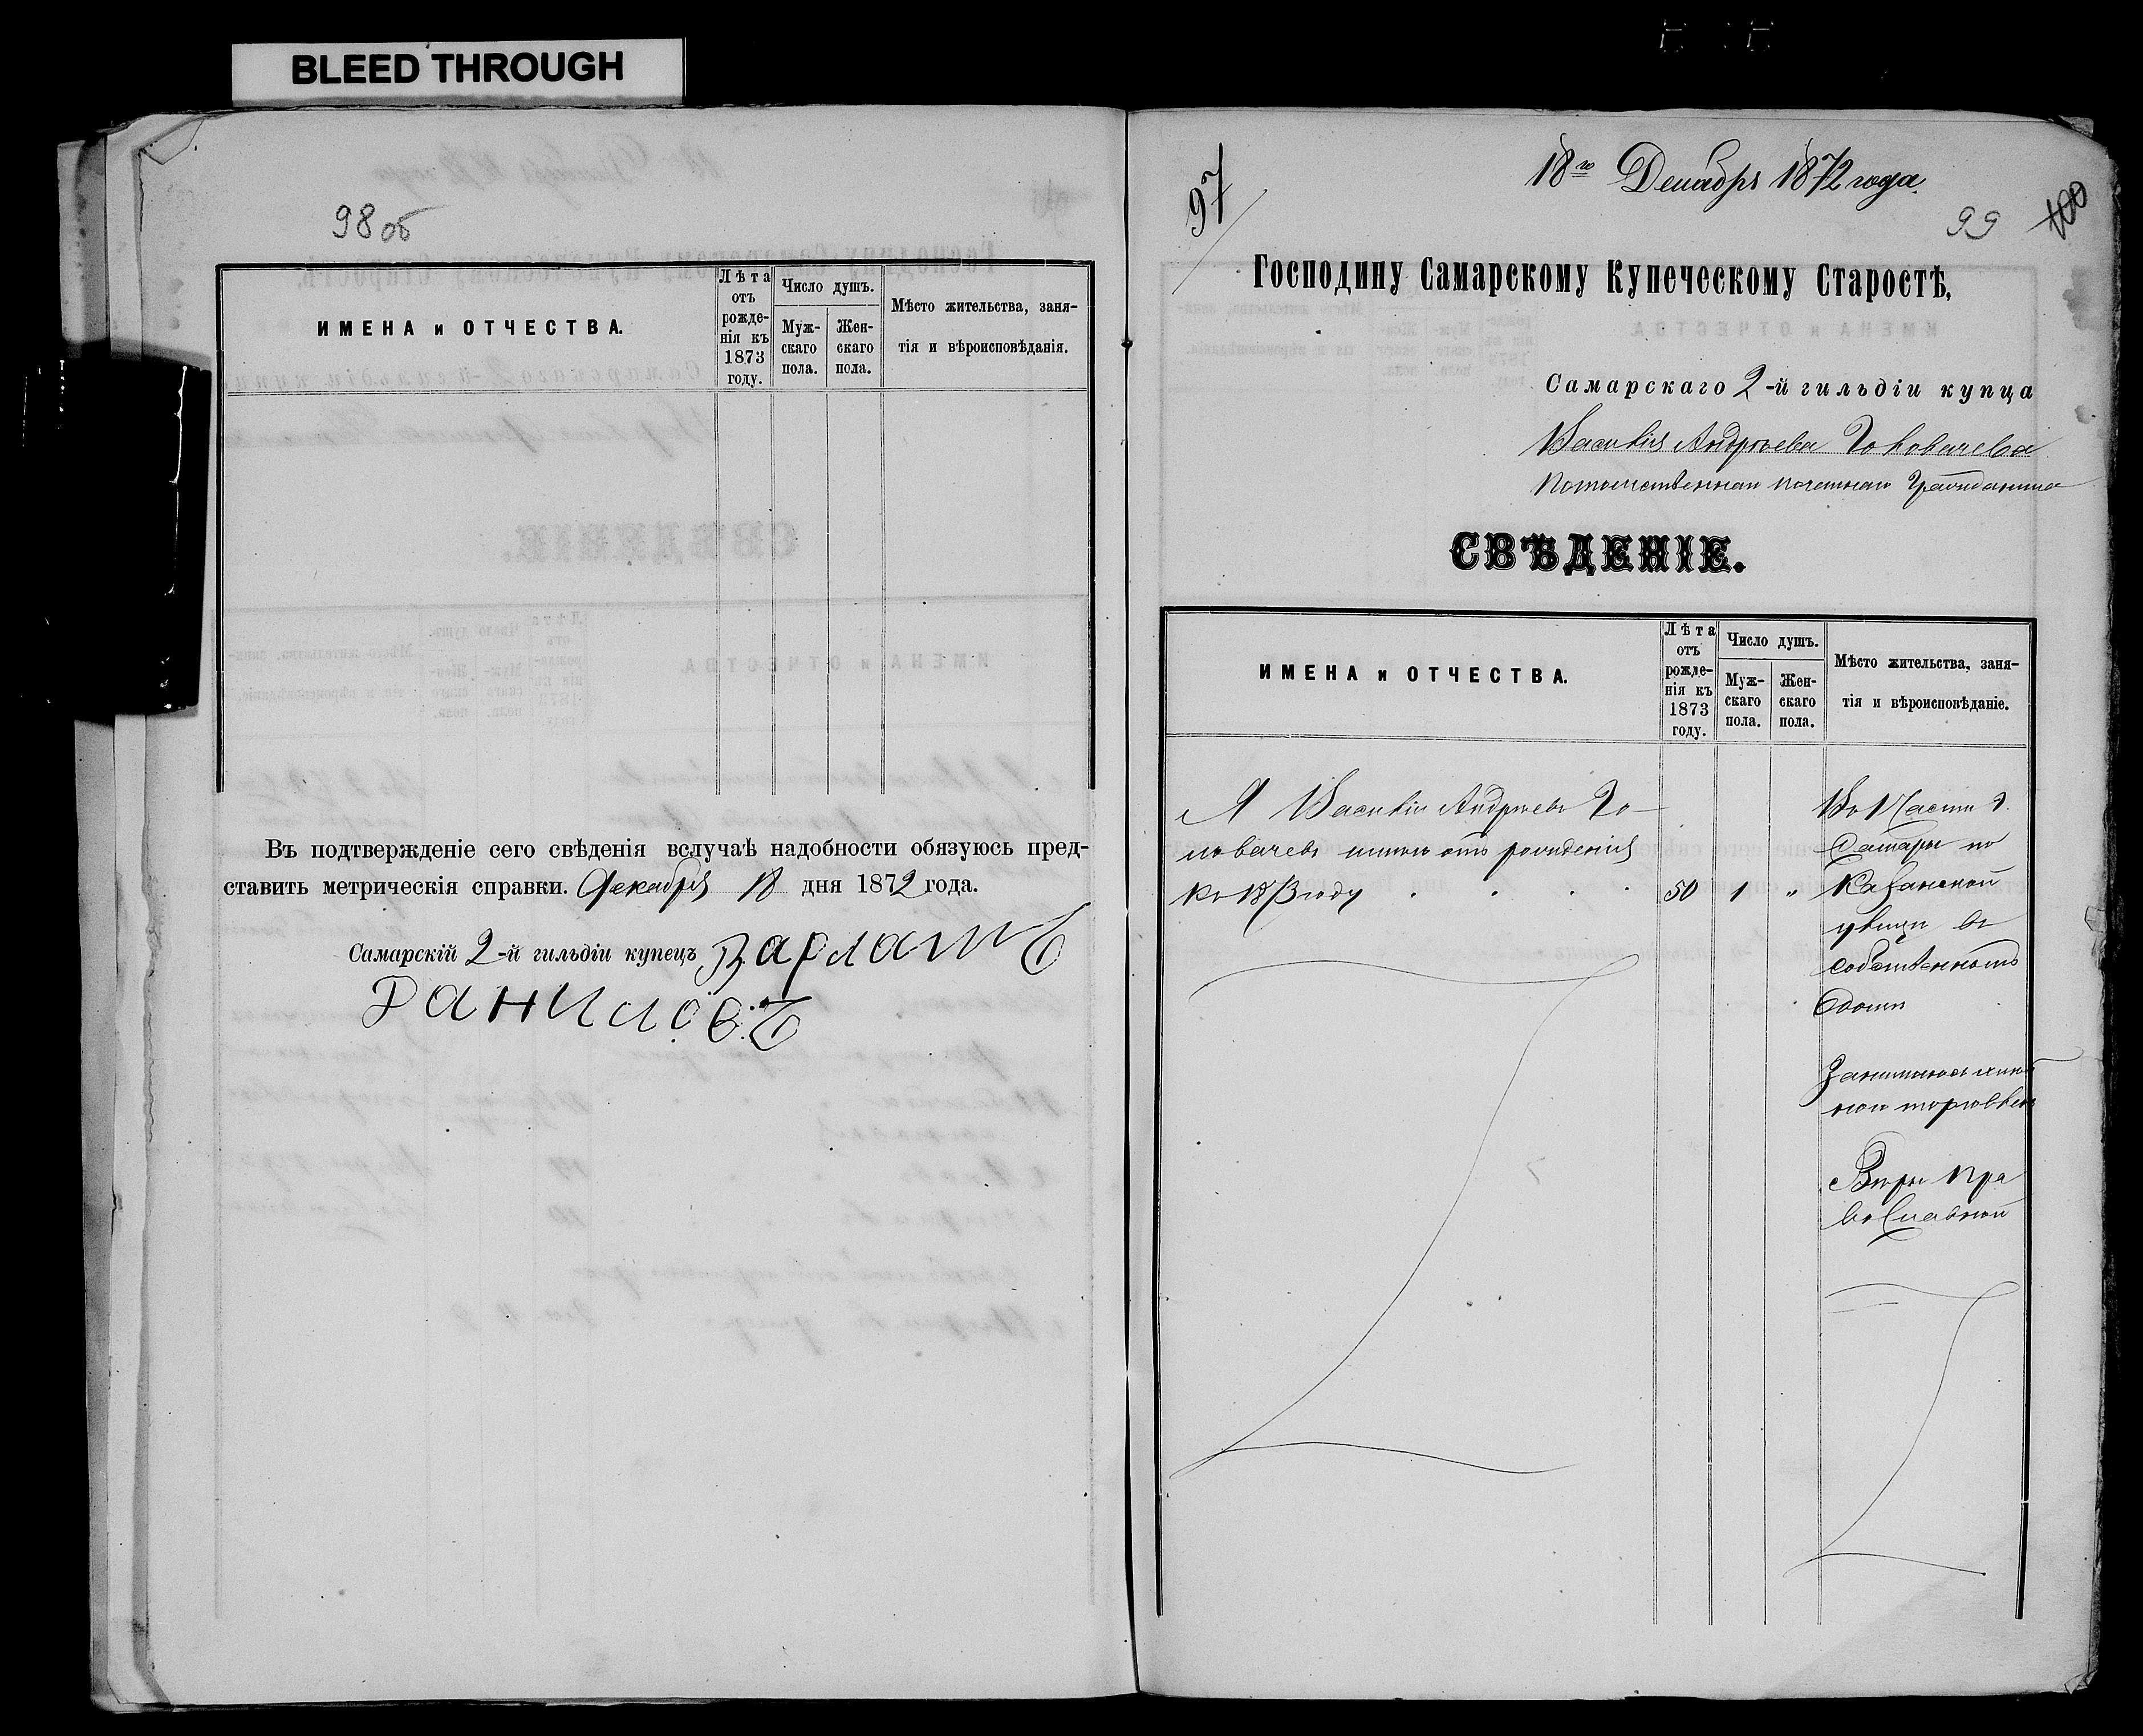 BLEED THROUGH
98 об
ИМЕНА и ОТЧЕСТВА.
Лѣта отъ рожде-нія къ 1873 году.
Число душъ.
Муж-скаго пола.
Жен-скаго пола.
Мѣсто жительства, заня-
тія и вѣроисповѣданія.
Въ подтвержденіе сего свѣденія вслучаѣ надобности обязуюсь пред-
ставить метрическія справки. Декабря 18 дня 1872 года.
Самарскій 2-й гильдіи купецъ Варламъ
Даниловъ
97
18го Декабря 1872 года.
99 100
Господину Самарскому Купеческому Старостѣ,
Самарскаго 2-й гильдіи купца
Василія Андрѣева Головачева
Потомственнаго почетнаго Гражданина
СВѢДЕНІЕ.
ИМЕНА и ОТЧЕСТВА.
Лѣта отъ рожде-нія къ 1873 году.
Число душъ.
Муж-скаго пола.
Жен-скаго пола.
Мѣсто жительства, заня-
тія и вѣроисповѣданіе.
Я Василій Андрѣевъ Го-
ловачевъ имѣю отъ рожденія
къ 1873 году . . . . 50 1 "
Во 1 Части г.
Самары по
Казанской
улицѣ въ
собственномъ
домѣ
Занимаюсь
торговлею
Вѣры Пра
вославной